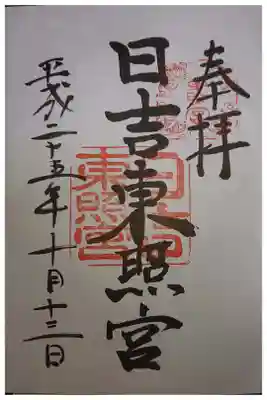 奉拝
日吉東照宮
平成二十五年十月十三日
日吉
東照宮